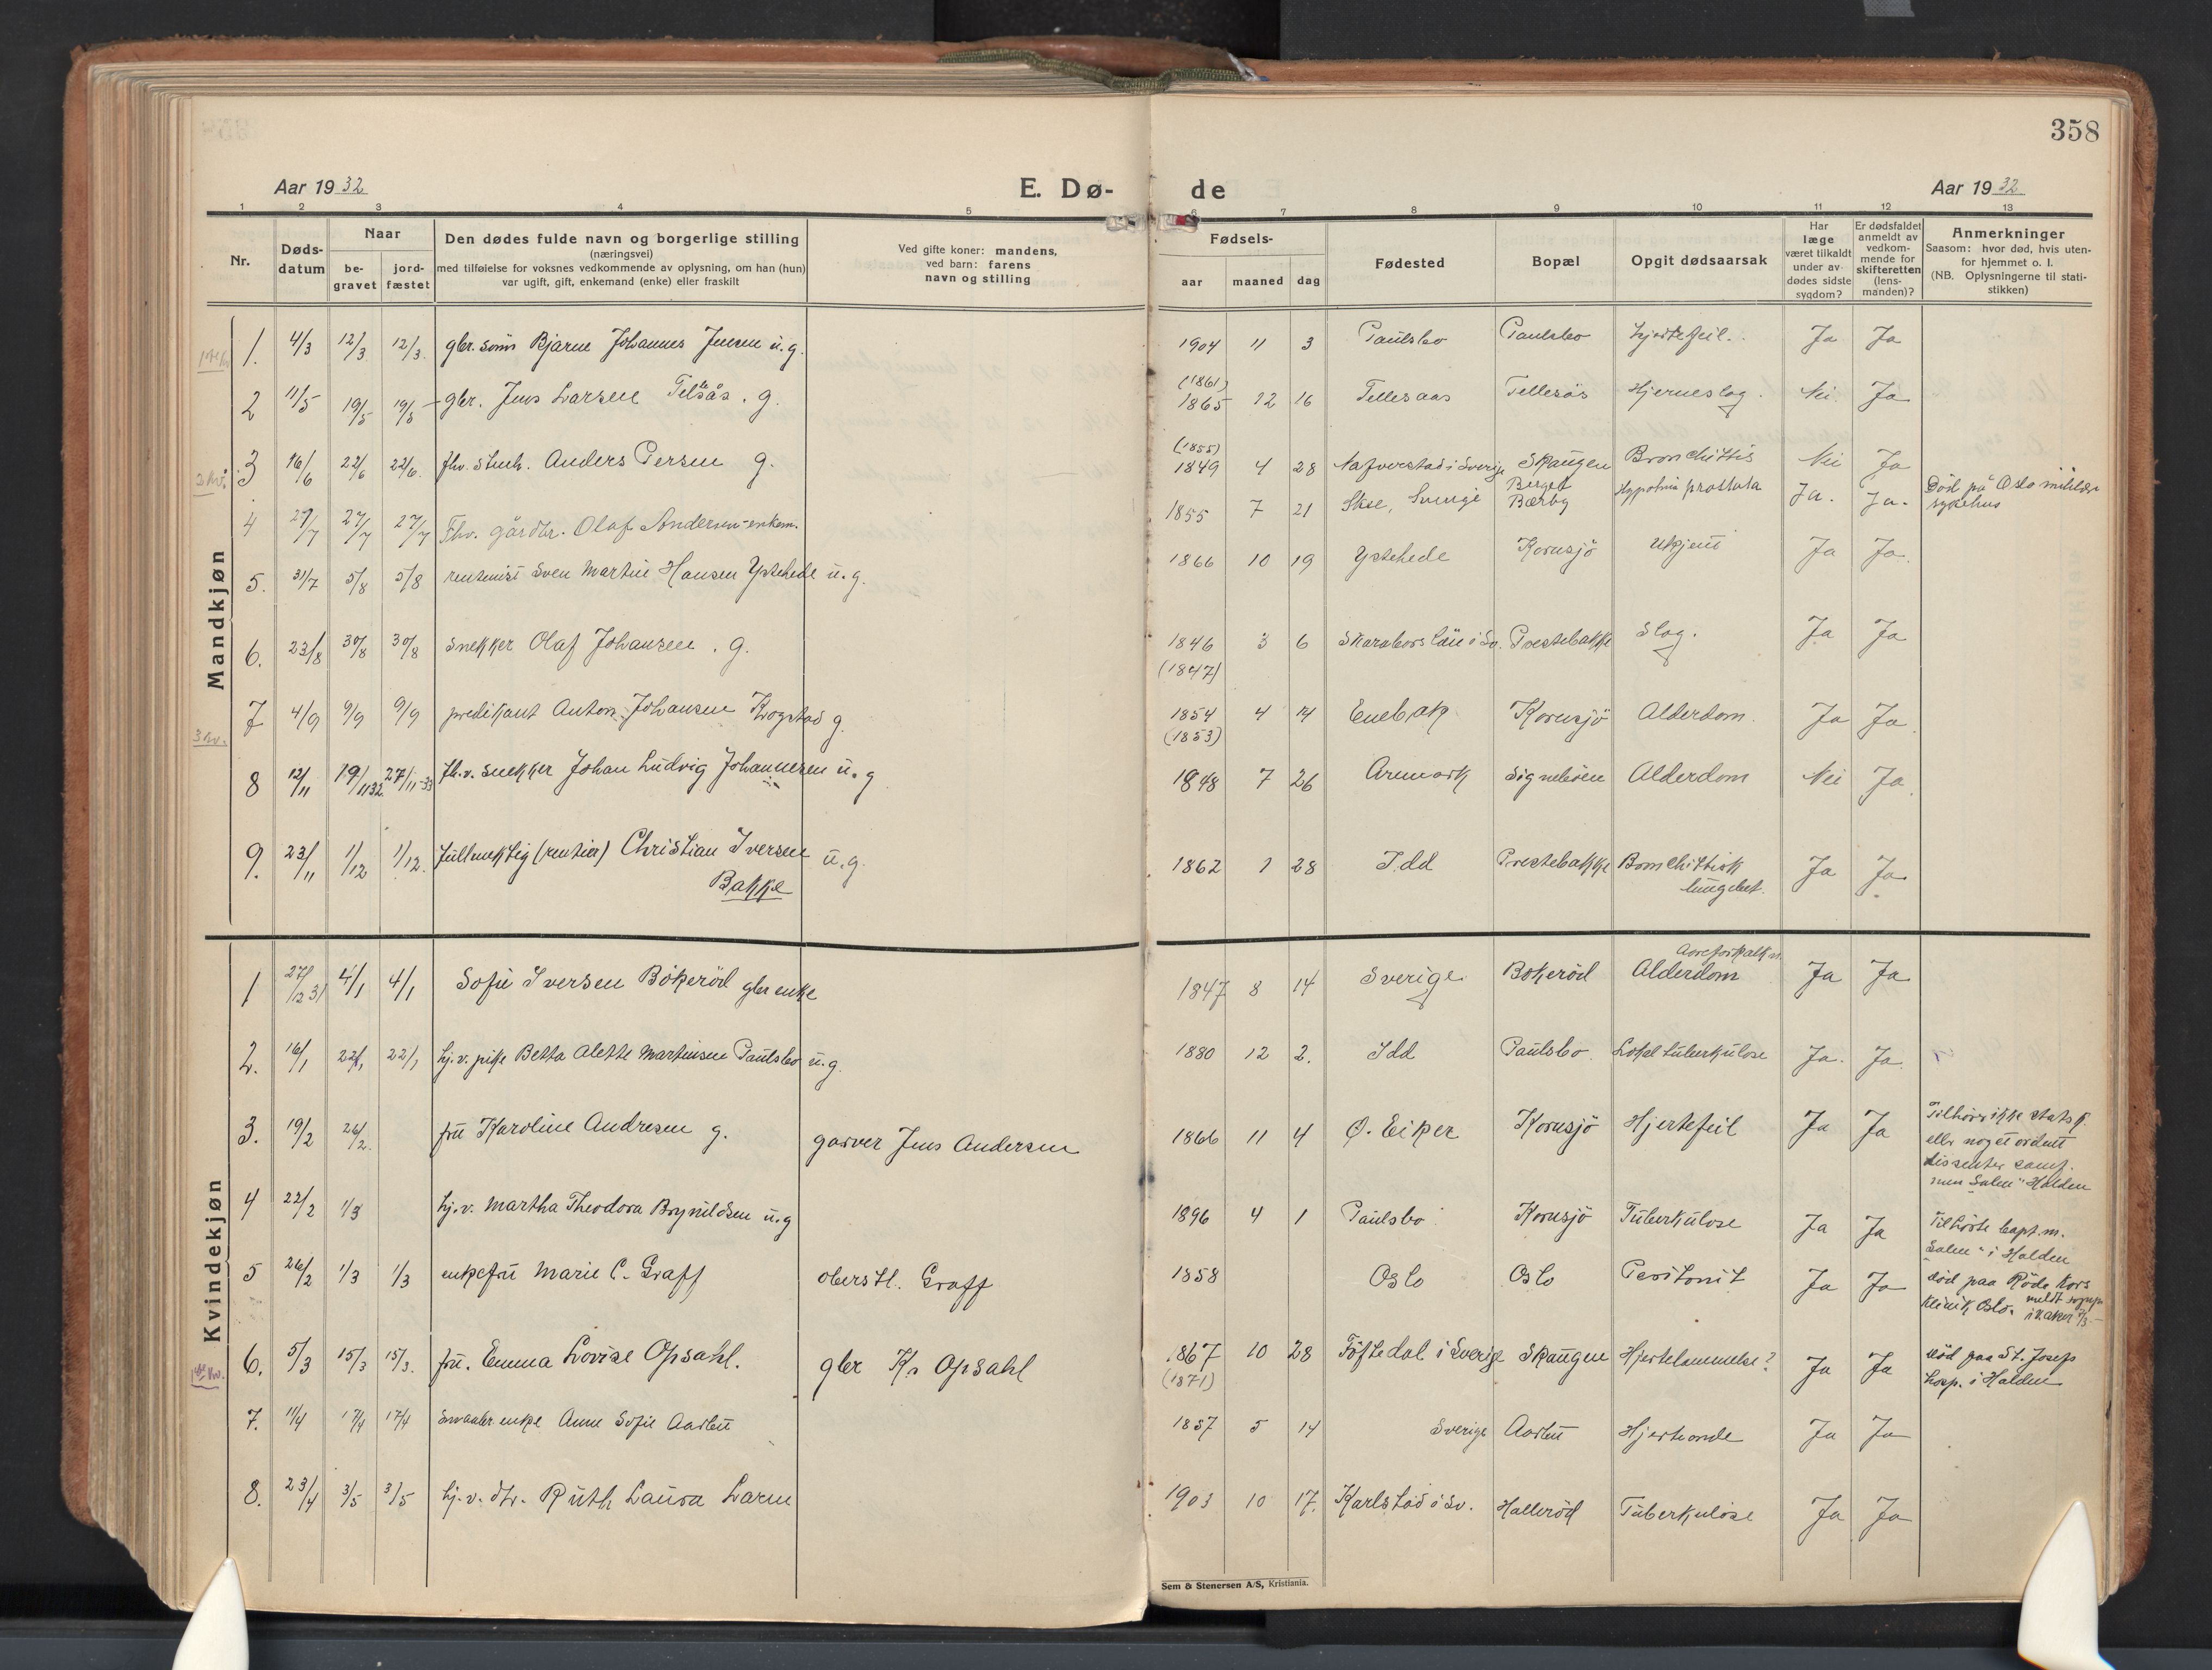 358
Aar 1932 E. Dø- de Aar 1932
1 2 3 4 5 6 7 8 9 10 11 12 13
Nr.
Døds-
datum
Naar
be-
gravet
jord-
fæstet
Den dødes fulde navn og borgerlige stilling
(næringsvei)
med tilføielse for voksnes vedkommende av oplysning, om han (hun)
var ugift, gift, enkemand (enke) eller fraskilt
Ved gifte koner: mandens,
ved barn: farens
navn og stilling
Fødsels-
aar maaned dag
Fødested
Bopæl
Opgit dødsaarsak
Har
læge
været tilkaldt
under av-
dødes sidste
sygdom?
Er dødsfaldet
anmeldt av
vedkom-
mende for
skifteretten
(lens-
manden)?
Anmerkninger
Saasom: hvor død, hvis uten-
for hjemmet o. l.
(NB. Oplysningerne til stati-
stikken)
Mandkjøn
1. 4/3 12/3 12/3. gbr. sønn Bjarne Johannes Jensen u.g. 1904 11 3 Paulsbo Paulsbo Hjertefeil. Ja Ja
2 11/5 19/5 19/5 gbr. Jens Larsen Tellesås. g. (1861) 1865 12 16 Tellesaas Tellesås Hjerneslag. Nei. Ja
3 16/6 22/6 22/6. fhv. Anders Persen g. (1855) 1849 4 28 Nafverstad i Sverige Skaugen Bronchittis Nei Ja
4 27/7 27/7 Fhv. gårdbr. Olaf Andersen-enkem. 1855 7 21 Sverige Berget Bærby prostata Ja. Ja. Død på Oslo militære sykehus
5. 31/7 5/8 5/8 Sven Martin Hansen Ystehede u.g. 1866 10 19 Ystehede Kornsjö Ukjent Ja Ja.
6. 23/8 30/8 30/8 Snekker Olaf Johansen. g. 1846 (1847) 3 6 Skaraborslän i Sv. Prestebakke Slag. Ja Ja
7 4/9 9/9 9/9 predikant Anton Johansen Krogstad g. 1854 (1853) 4 14 Enebak Kornsjö Alderdom. Ja Ja
8 12/11 19/11 32 27/11-33 fh.v. snekker Johan Ludvig Johannesen u.g 1848 7 26 Aremark Signebøen Alderdom Nei Ja
9. 23/11 1/12 1/12. fullmektig (rentier) Christian Iversen u.g.
Bakke
1862 1 28 Idd Prestebakke Bronchittisk lungebet. Ja Ja
Kvindekjøn
1 27/12 31 4/1 4/1 Sofie Iversen Bökeröd gbr enke 1847 8 14 Sverige Bökeröd Aareforkalkn. Alderdom Ja Ja
2. 16/1 22/1 22/1 hj.v. pike Betta Alette Martinsen Paulsbo u.g. 1880 12 2. Idd Paulsbo. Lokal tuberkulose Ja. Ja.
3. 19/2 26/2. fru Karoline Andresen g. garver Jens Andersen 1866 11 4 Ø. Eiker Kornsjö Hjertefeil Ja Ja Tilhører ikke statsk.
eller noget ordnet
dissenter samf.
men "Salen" Halden
4 22/2 1/3 hj.v. Martha Theodora Brynildsen u.g 1896 4 1 Paulsbo Kornsjö Tuberkulose Ja Ja Tilhørte bapt.m.
"Salen" i Halden
5 26/2 1/3 1/3 enkefru Marie C. Graff oberstl. Graff 1858 Oslo Oslo Peritonit Ja Ja död paa Röde Kors
Klinik Oslo.
6. 5/3 15/3 15/3. fru. Emma Lovise Opsahl. gbr Kr Opsahl 1867 (1871) 10 28 Töftedal i Sverige Skaugen Hjertelammelse? Ja Ja död paa St. Josefs
hosp. i Halden
7. 11/4 17/4 17/4 Smaabr. enke Anne Sofie Aarbu 1857 5 14 Sverige Aarbu Hjerteonde Ja Ja
8. 23/4 3/5 3/5 hj.v. dtr. Ruth Laura Larsen 1903 10 17. Karlstad i Sv. Halleröd Tuberkulose Ja Ja
Sem & Stenersen A/S, Kristiania.